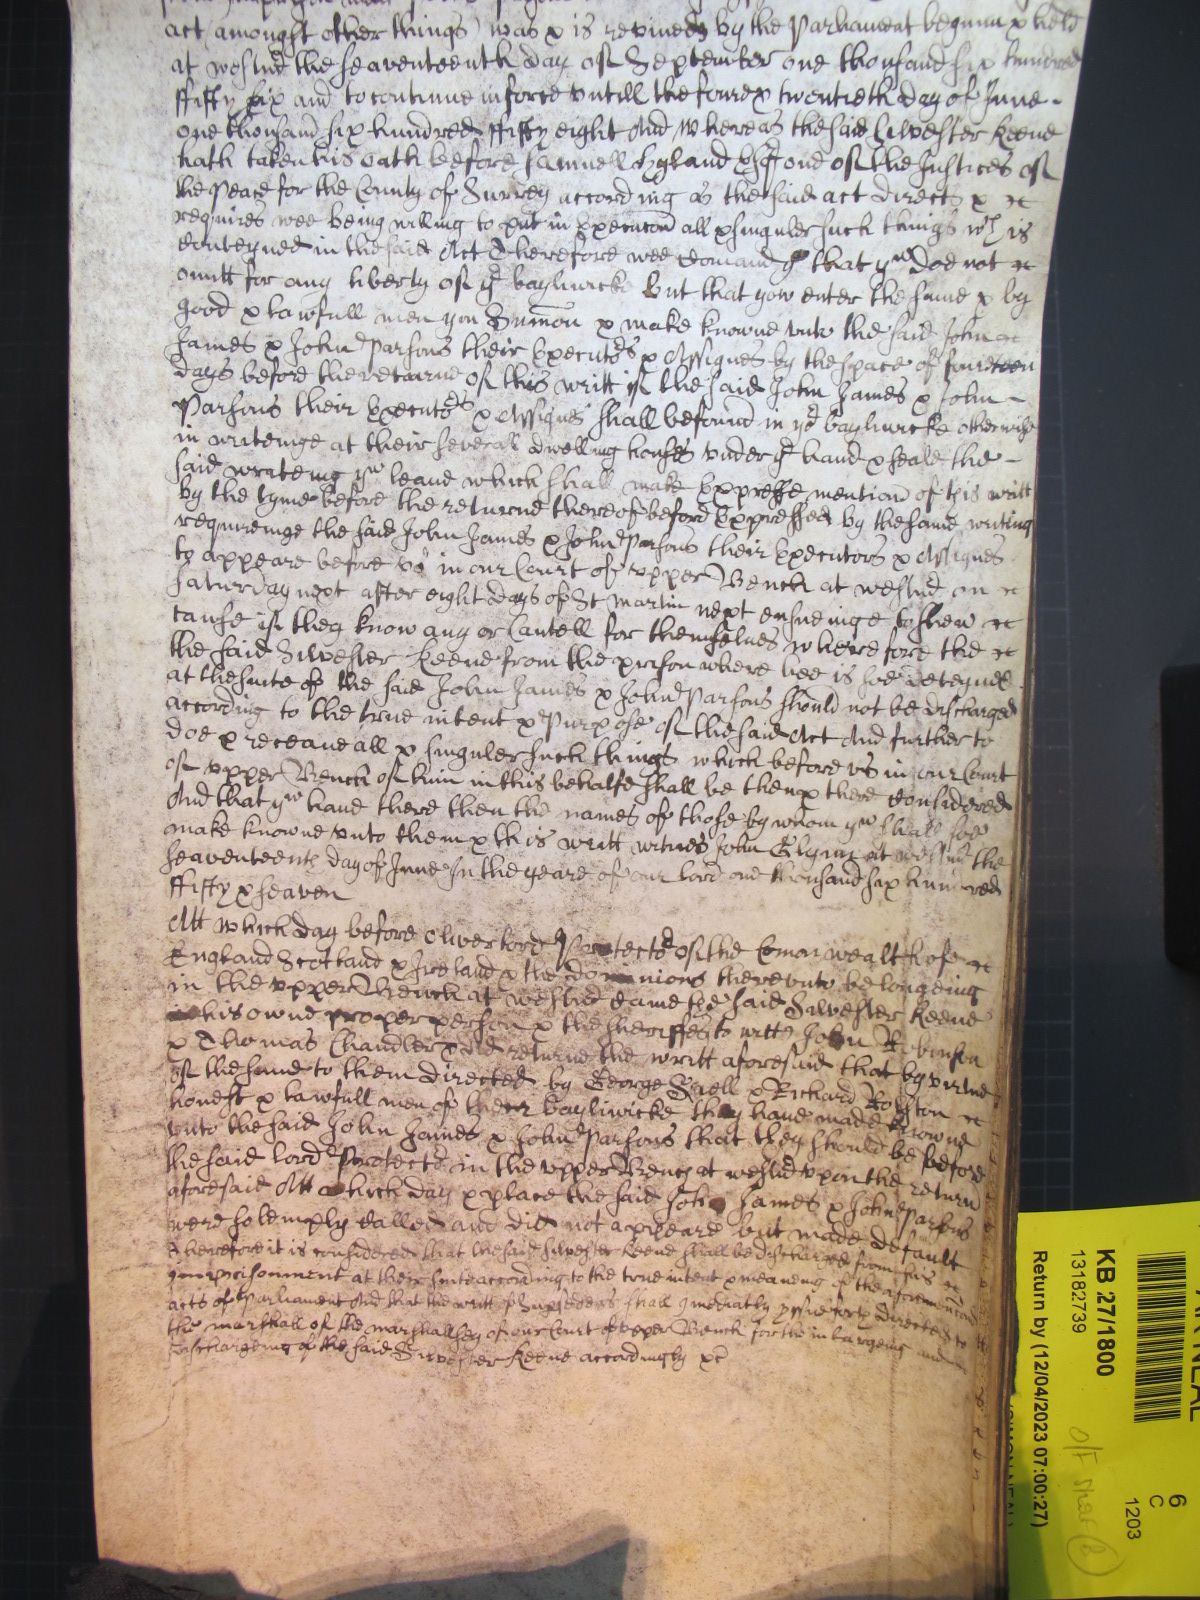 act amongst other things was & is revived by the Parliament begunn & held
at westmr the seaventeenth day of September one thousand six hundred
ffifty six and to continue in force untill the foure & twentieth day of June
one thousand six hundred ffifty eight And Whereas the said Silvester Keene
hath taken his oath before Samuell Hyland Esqr one of the Justices of
the Peace for the County of Surrey according as the said act directs &
requires wee being willing to put in execucon all & singuler such things wch is
conteyned in the said Act Therefore wee comand yu that yw doe not
omitt for any liberty of yr bayliwicke But that yow enter the same & by
good & lawfull men yow Sumon & make knowne unto the said John
James & John Parsons their Executrs & Assignes by the space of fourteen
days before the returne of this writt if the said John James & John
Parsons their Executrs & Assignes shall be found in yr bayliwicke otherwise
in writeinge at their severall dwelling houses under yr hand & seale the
said writeing yw leave which shall make Expresse mention of this writt
by the tyme before the returne thereof before Expressed by the same writing
requireinge the said John James & John Parsons their Executors & Assignes
to appeare before us in our Court of upper Bench at westmr on
Saturday next after eight days of St Martin next ensueinge to shew
cause if they know any or can tell for themselves wherefore the
the said Silvester Keene from the prison where hee is soe deteyned
at the suite of the said John James & John Parsons should not be discharged
according to the true intent & Purpose of the said Act And further to
doe & receave all & singuler such things which before us in our Court
of upper Bench of him in this behalfe shall be then & there considered
And that yw have there then the names of those by whom yw shall soe
make knowne unto them & this writt witnes John Glynn at westmr the
seaventeenth day of June In the yeare of our Lord one thousand six hundred
ffifty & seaven
Att which day before Oliver Lord Protector of the Comon wealth of
England Scotland & Ireland & the dominions thereunto belongeing
in the upper Bench at westmr came the said Silvester Keene
in his owne proper person & the sheriffes to witt John Robinson
& Thomas Chandler &c returne the writt aforesaid that by virtue
of the same to them directed by George & Richard
honest & lawfull men of their bayliwicke they have made knowne
unto the said John James & John Parsons that they should be before
the said Lord Protector in the upper Bench at westmr upon the return
aforesaid Att which day & place the said John James & John Parsons
were solemply called and did not appeare but made default
Therefore it is considered that the said Silvester Keene shall be discharged from his
imprisonment at their suite according to the true intent & meaneing of the aforementioned
acts of Parliament And that the writt of Supsedeas shall imediatly yssue forth directed to
the marshall of the marshallsey of our Court of upper Bench for the inlargeing and
dischargeing of the said Silvester Keene accordingly &c
KB 27/1800
13182739
Return by (12/04/2023 07:00:27)
6
C
1203